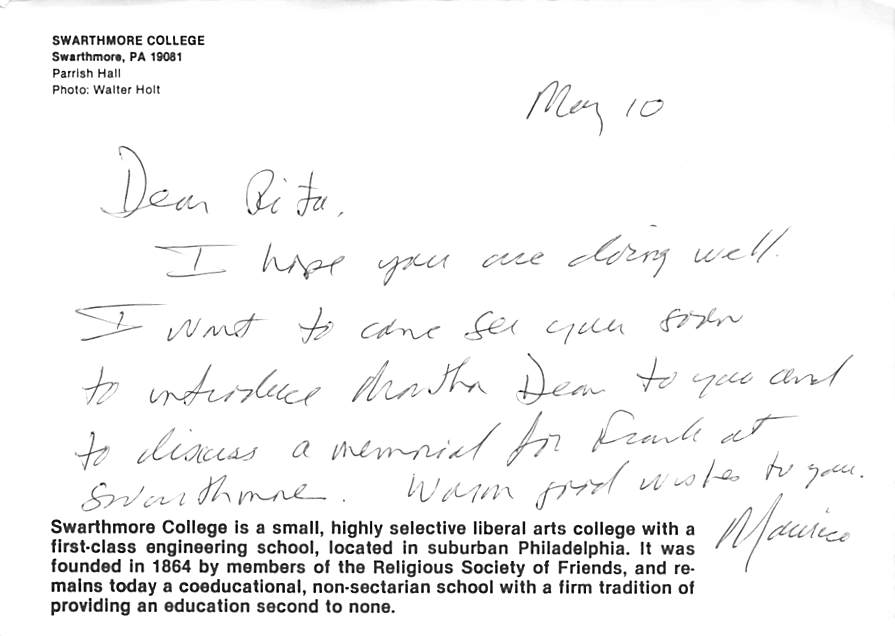 SWARTHMORE COLLEGE
Swarthmore, PA 19081
Parrish Hall
Photo: Walter Holt
May 10
Dear Rita,
I hope you are doing well.
I want to come see you soon
to introduce Martha Dean to you and
to discuss a memorial for Frank at
Swarthmore. Warm good wishes to you.
Maurice
Swarthmore College is a small, highly selective liberal arts college with a
first-class engineering school, located in suburban Philadelphia. It was
founded in 1864 by members of the Religious Society of Friends, and re-
mains today a coeducational, non-sectarian school with a firm tradition of
providing an education second to none.